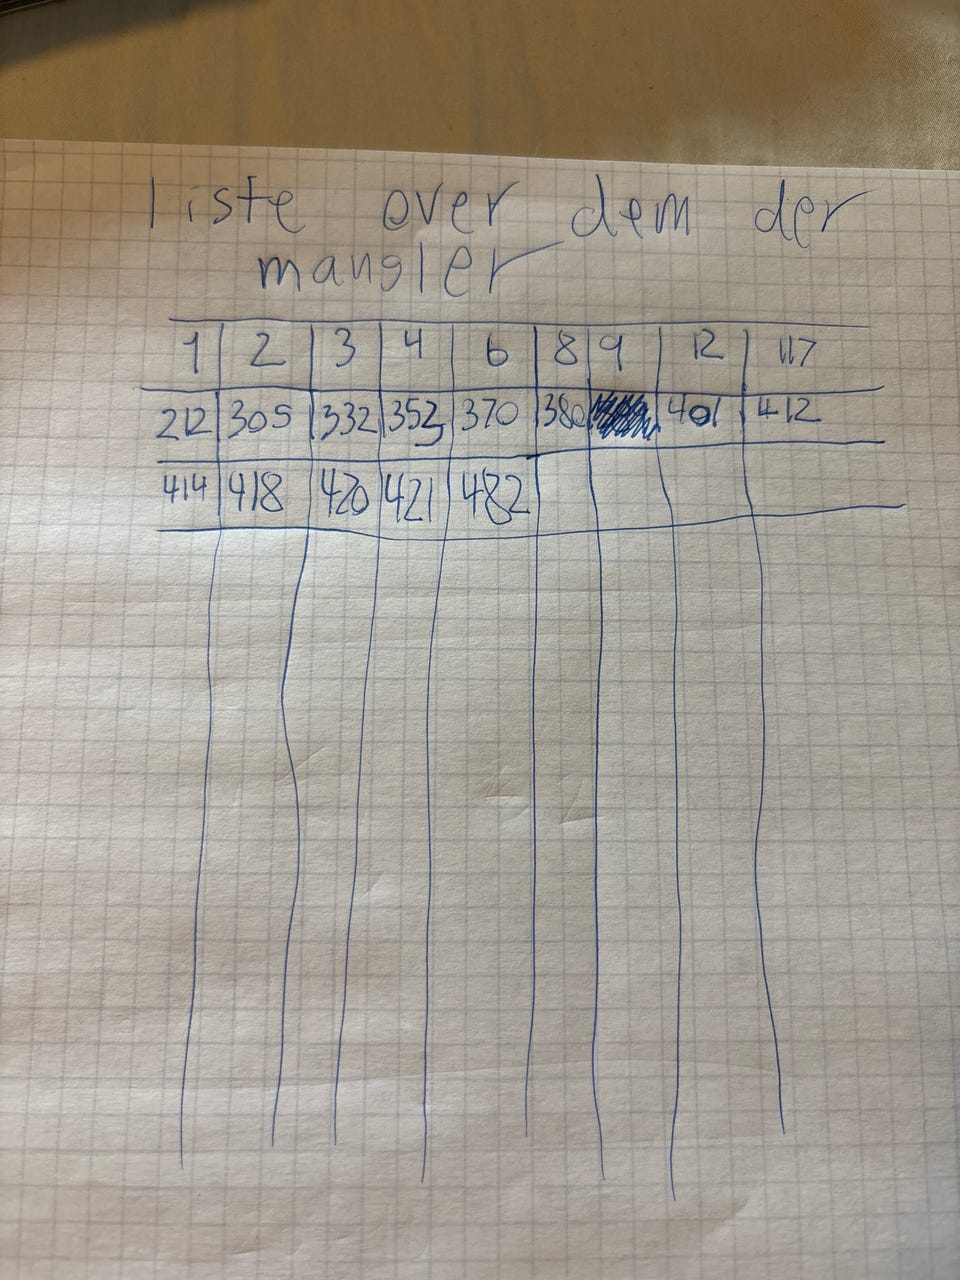 liste over dem der
mangler
1 2 3 4 6 8 9 12 117
212 305 332 353 370 380 401 412
414 418 420 421 482